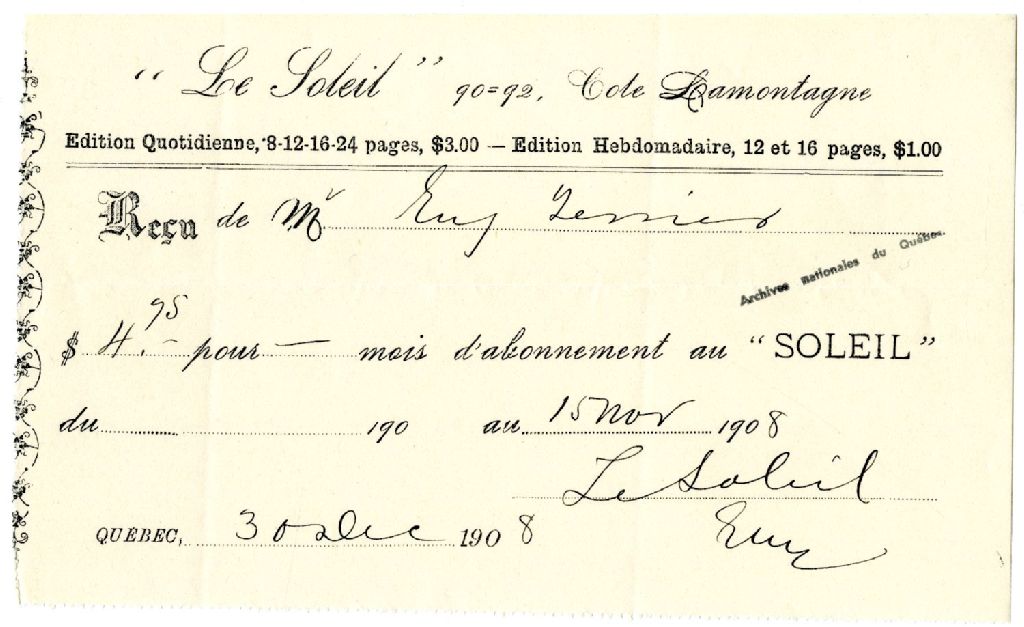 “ Le Soleil ” 90=92, Cote Lamontagne
Edition Quotidienne, 8-12-16-24 pages, $3.00 — Edition Hebdomadaire, 12 et 16 pages, $1.00
Reçu de Mr
Archives nationales du Québec.
$ 4.95 pour — mois d'abonnement au “SOLEIL”
du 190 au 15 Nov 1908
Le Soleil
QUÉBEC, 30 Dec 1908